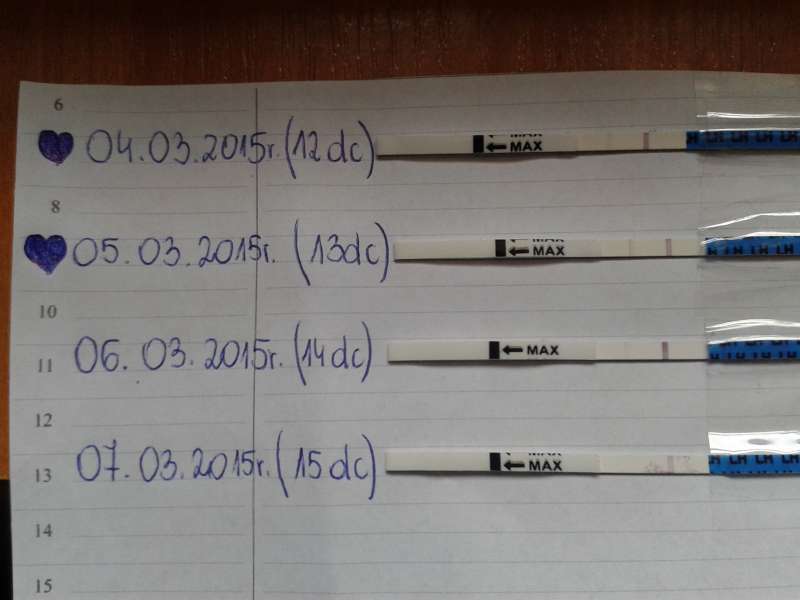 6
04.03.2015r. (12dc) MAX MAX LH LH LH LH
8
05.03.2015r. (13dc) MAX MAX LH LH LH LH
10
11 06.03.2015r. (14dc) MAX LH LH LH LH
12
13 07.03.2015r. (15dc) MAX MAX LH LH LH LH
14
15